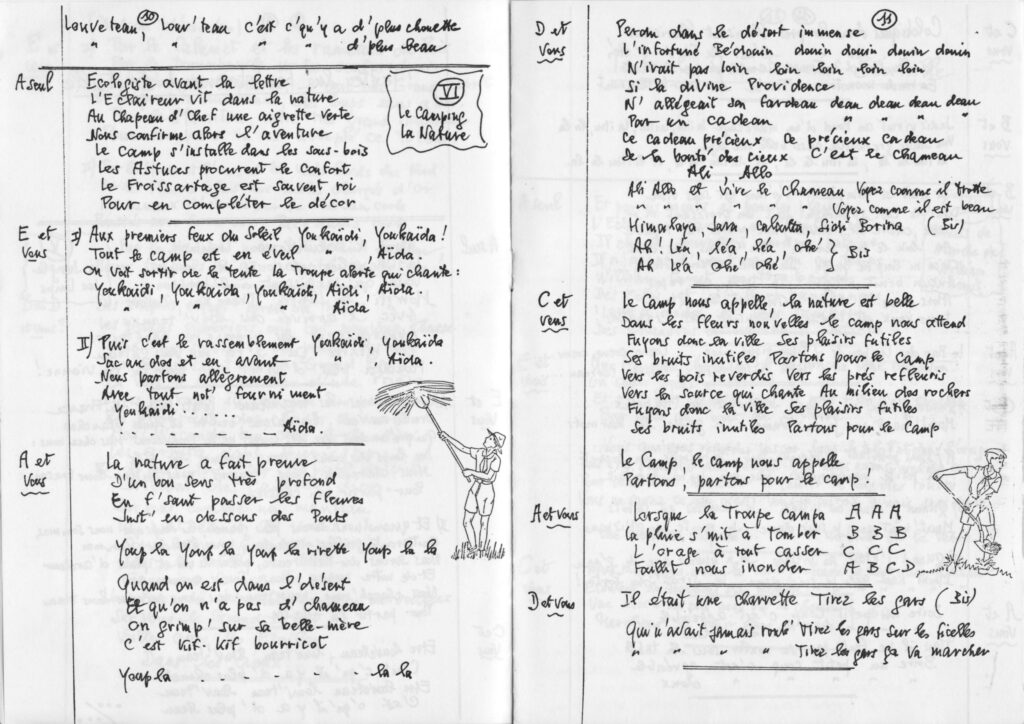 10
Louveteau, Louv'teau c'est c'qu'y a d'plus chouette
" " " d'plus beau
A seul
Ecologiste avant la lettre
L'Eclaireur vit dans la nature
Au Chapeau d'Chef une aigrette verte
Nous confirme alors l'aventure
Le camp s'installe dans les sous-bois
Les Astuces procurent le confort
Le Froissartage est souvent roi
Pour en compléter le décor
VI
Le Camping
La Nature
E et
Vous
I) Aux premiers feux du Soleil Youkaïdi, Youkaïda !
Tout le camp est en éveil " , Aïda.
On voit sortir de la tente la Troupe alerte qui chante :
Youkaïdi, Youkaïda, Youkaïdi, Aïdi, Aïda.
" Aïda
II) Puis c'est le rassemblement Youkaïdi, Youkaïda
Sac au dos et en avant " , Aïda.
Nous partons allègrement
Avec tout not' fourniment
Youkaïdi . . . . . .
: . _ _ _ _ _ _ Aïda.
A et
Vous
La nature a fait preuve
D'un bon sens très profond
En f'sant passer les fleuves
Just' en dessous des Ponts
Youp la Youp la Youp la virette Youp la la
Quand on est dans l'désert
Et qu'on n'a pas d'chameau
On grimp' sur sa belle-mère
C'est Kif-Kif bourricot
Youp la - - - - - - - la la
11
D et
Vous
Perdu dans le désert immense
L'infortuné Bédouin douin douin douin douin
N'irait pas loin loin loin loin loin
Si la divine Providence
N'allégeait son fardeau deau deau deau deau
Par un cadeau " " " "
Ce cadeau précieux Ce précieux cadeau
De la bonté des cieux C'est le chameau
Ali, Allo
Ali Allo et vive le chameau Voyez comme il trotte
" " " " " " Voyez comme il est beau
Himalaya, Java, Calcutta, Sidi Borina (Bis)
Ah ! Léa, léa, léa ohé } Bis
Ah léa, ohé ohé
C et
vous
Le Camp nous appelle, la nature est belle
Dans les fleurs nouvelles le camp nous attend
Fuyons donc la ville Ses plaisirs futiles
Ses bruits inutiles Partons pour le Camp
Vers les bois reverdis Vers les prés refleuris
Vers la source qui chante Au milieu des rochers
Fuyons donc la ville Ses plaisirs futiles
Ses bruits inutiles Partons pour le Camp
Le Camp, le camp nous appelle
Partons, partons pour le camp !
A et vous
Lorsque la Troupe campa A A A
La pluie s'mit à tomber B B B
L'orage à tout casser C C C
Faillit nous inonder A B C D
D et vous
Il était une charrette Tirez les gars (Bis)
Qui n'avait jamais roulé Tirez les gars sur les ficelles
" " " " Tirez les gars ça va marcher